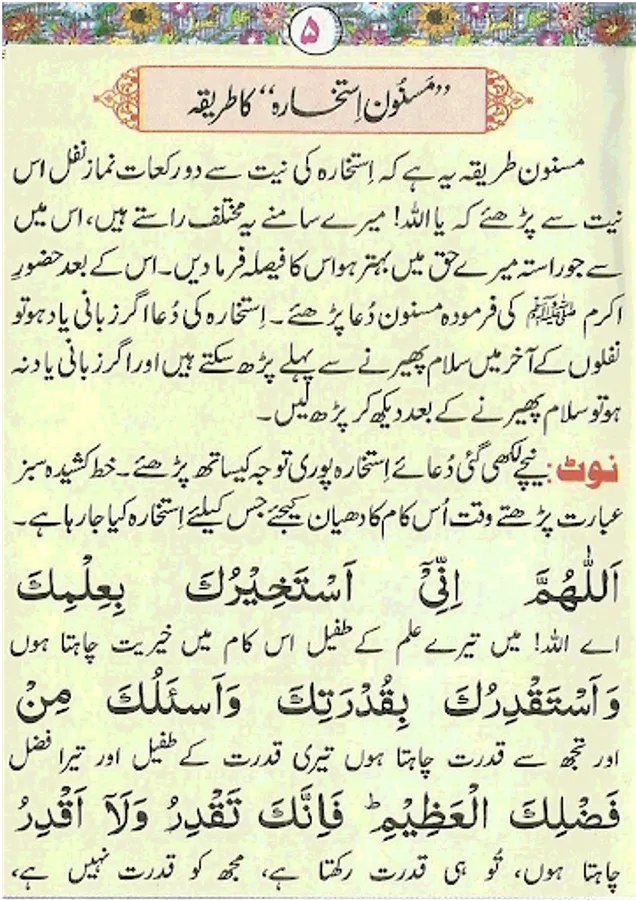 ۵
”مَسنُون اِستخارہ“ کا طریقہ
مسنون طریقہ یہ ہے کہ اِستخارہ کی نیت سے دو رکعات نماز نفل اس
نیت سے پڑھئے کہ یا اللہ! میرے سامنے یہ مختلف راستے ہیں، اس میں
سے جو راستہ میرے حق میں بہتر ہو اس کا فیصلہ فرما دیں۔ اس کے بعد حضورِ
اکرم ﷺ کی فرمودہ مسنون دُعا پڑھئے۔ اِستخارہ کی دُعا اگر زبانی یاد ہو تو
نفلوں کے آخر میں سلام پھیرنے سے پہلے پڑھ سکتے ہیں اور اگر زبانی یاد نہ
ہو تو سلام پھیرنے کے بعد دیکھ کر پڑھ لیں۔
نوٹ: نیچے لکھی گئی دُعائے اِستخارہ پوری توجہ کیساتھ پڑھئے۔ خط کشیدہ سبز
عبارت پڑھتے وقت اُس کام کا دھیان کیجئے جس کیلئے اِستخارہ کیا جارہا ہے۔
اَللّٰهُمَّ اِنِّیْٓ اَسْتَخِیْرُكَ بِعِلْمِكَ
اے اللہ! میں تیرے علم کے طفیل اس کام میں خیریت چاہتا ہوں
وَاَسْتَقْدِرُكَ بِقُدْرَتِكَ وَاَسئَلُكَ مِنْ
اور تجھ سے قدرت چاہتا ہوں تیری قدرت کے طفیل اور تیرا فضل
فَضْلِكَ الْعَظِیْمِ ؕ فَاِنَّكَ تَقْدِرُ وَلَآ اَقْدِرُ
چاہتا ہوں، تُو ہی قدرت رکھتا ہے، مجھ کو قدرت نہیں ہے،